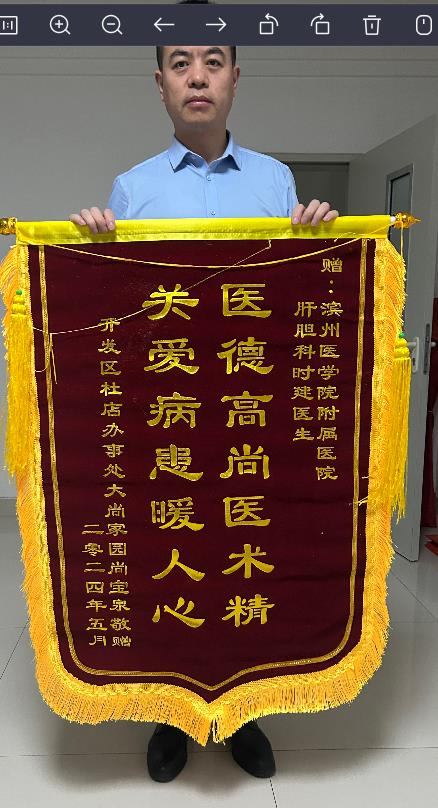 1:1
赠：滨州医学院附属医院
肝胆科时建医生
医德高尚医术精
关爱病患暖人心
开发区杜店办事处大尚家园尚宝泉敬赠
二零二四年五月